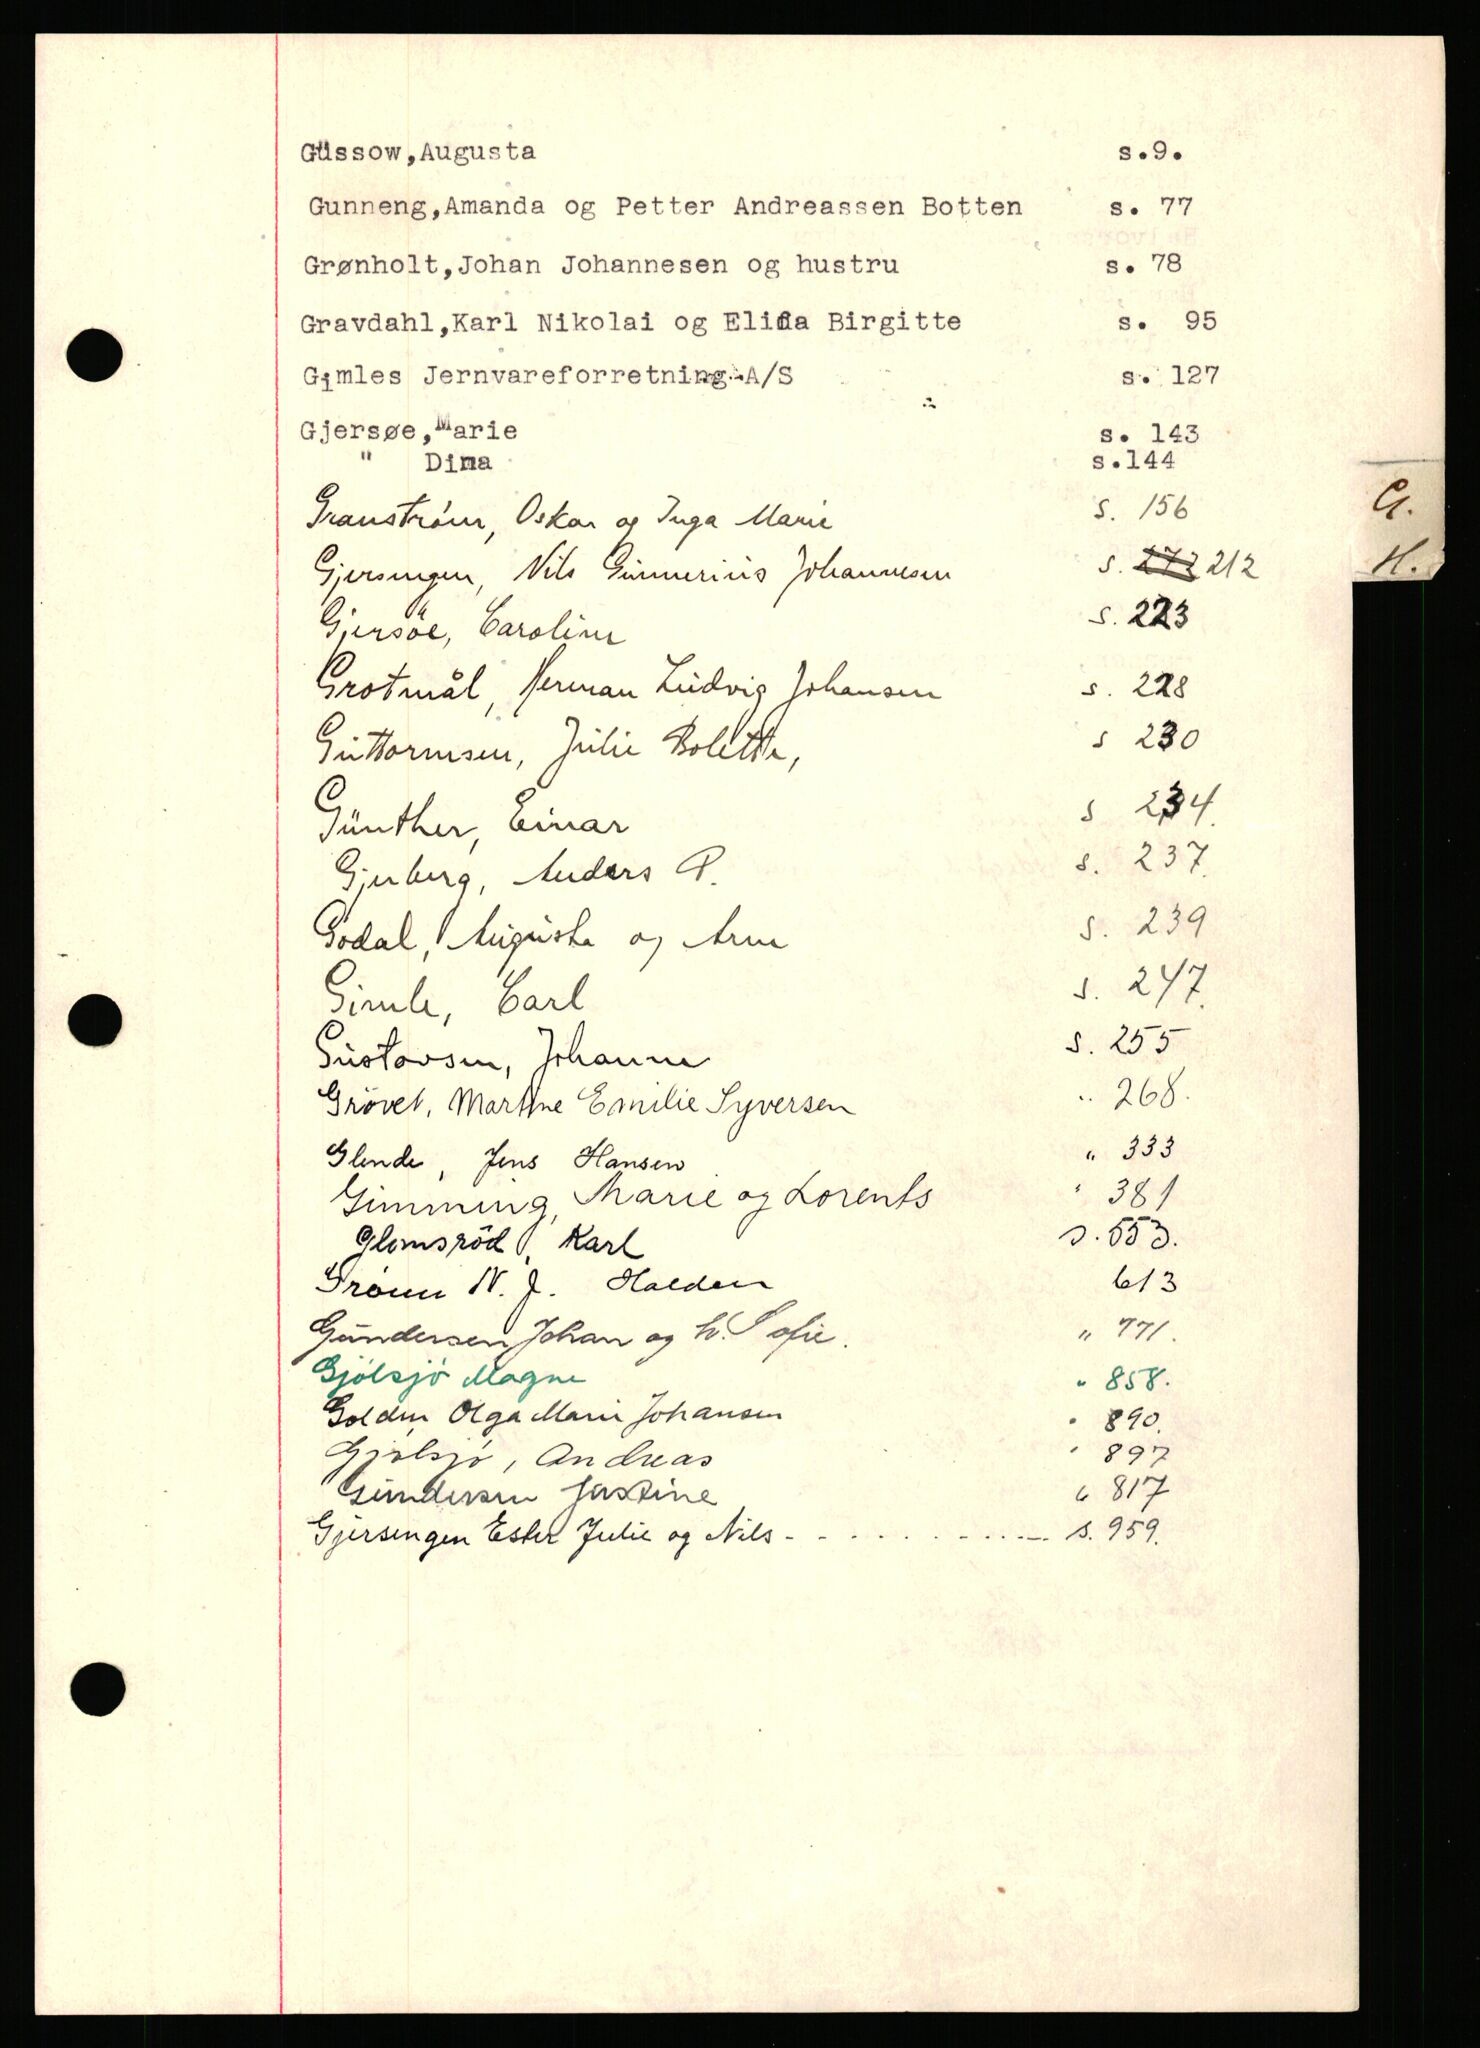 Güssow,Augusta s.9.
Gunneng,Amanda og Petter Andreassen Botten s. 77
Grønholt,Johan Johannesen og hustru s. 78
Gravdahl,Karl Nikolai og Elida Birgitte s. 95
Gimles Jernvareforretning A/S s. 127
Gjersøe,Marie s. 143
" Dina s.144
Granström, Oskar og Inga Marie s. 156
Gjersingen, Nils Gunnerius Johannesen s. 212
Gjersöe, Caroline s. 223
Grotmål, Herman Ludvig Johansen s. 228
Guttormsen, Julie Bolette, s 230
Günther, Einar s 234.
Gjerberg, Anders P. s. 237.
Godal, Augusta og Arne s. 239
Gimle, Carl s. 247.
Gustavsen, Johanne s. 255
Grövel, Martine Emilie Syversen " 268.
Glende, Jens Hansen " 333
Gimming, Marie og Lorents " 381
Glomsröd, Karl s. 553.
Grönn N. J. Halden 613
Gundersen Johan og h. Sofie. " 771.
Gjölsjö Magne " 858.
Golden, Olga Marie Johansen " 890.
Gjølsjø, Andreas " 897
Gundersen Justine " 817
Gjersengen Ester Julie og Nils - - - - - - - - - s. 959.
G.
H.